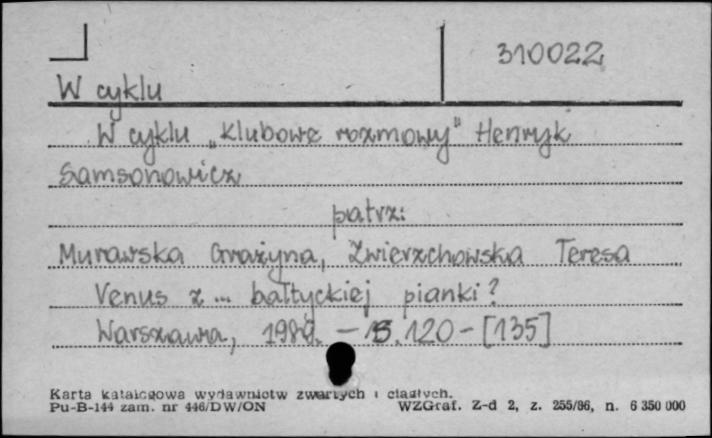 310022
W cyklu
W cyklu „Klubowe rozmowy" Henryk
Samsonowicz
patrz:
Murawska Grażyna, Zwierzchowska Teresa
Venus z ... bałtyckiej pianki?
Warszawa, 1989. – S. 120 – [135]
Karta katalogowa wydawnictw zwartych i ciągłych.
Pu-B-144 zam. nr 446/DW/ON
WZGraf. Z-d 2, z. 255/86, n. 6 350 000